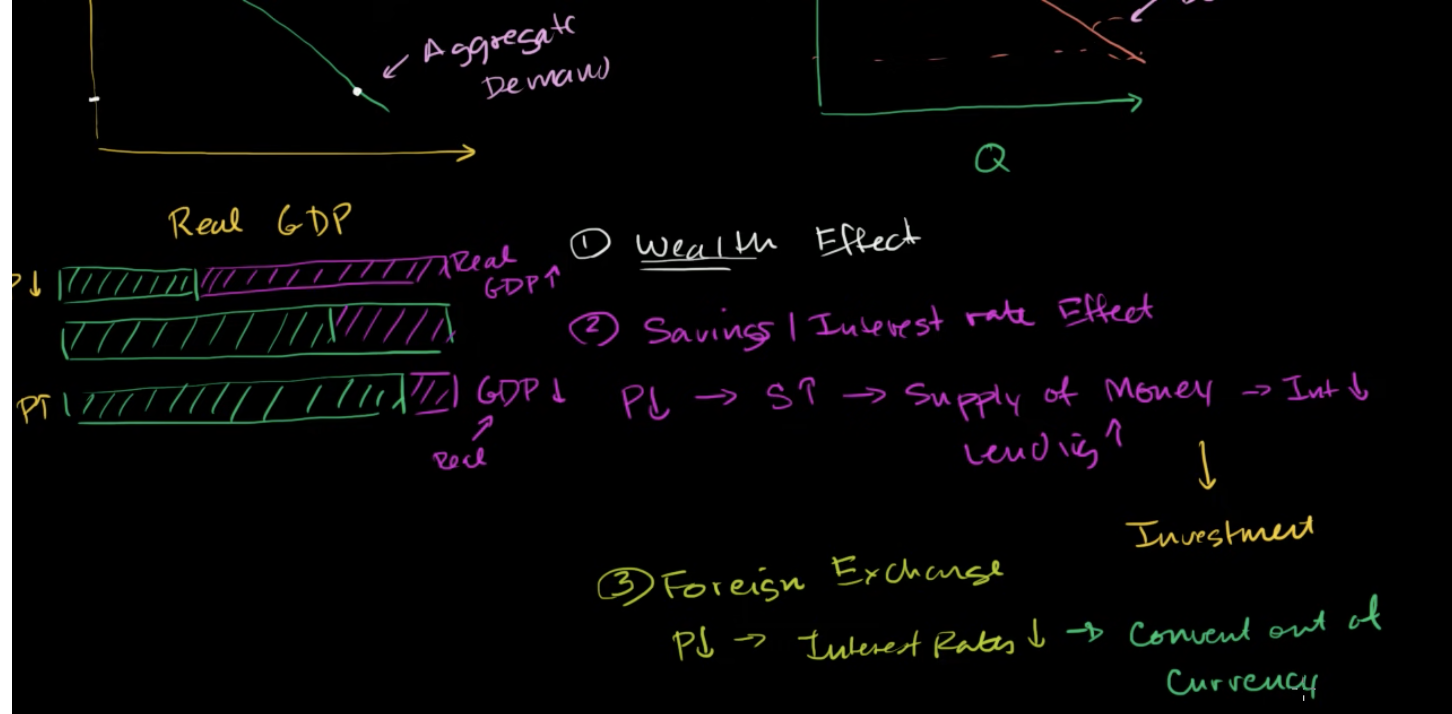 Aggregate
Demand
Q
Real GDP
P↓
Real
GDP↑
P↑
GDP↓
Real
① Wealth Effect
② Savings / Interest rate Effect
P↓ → S↑ → Supply of Money → Int↓
Lending↑
↓
Investment
③ Foreign Exchange
P↓ → Interest Rates↓ → Convert out of
Currency